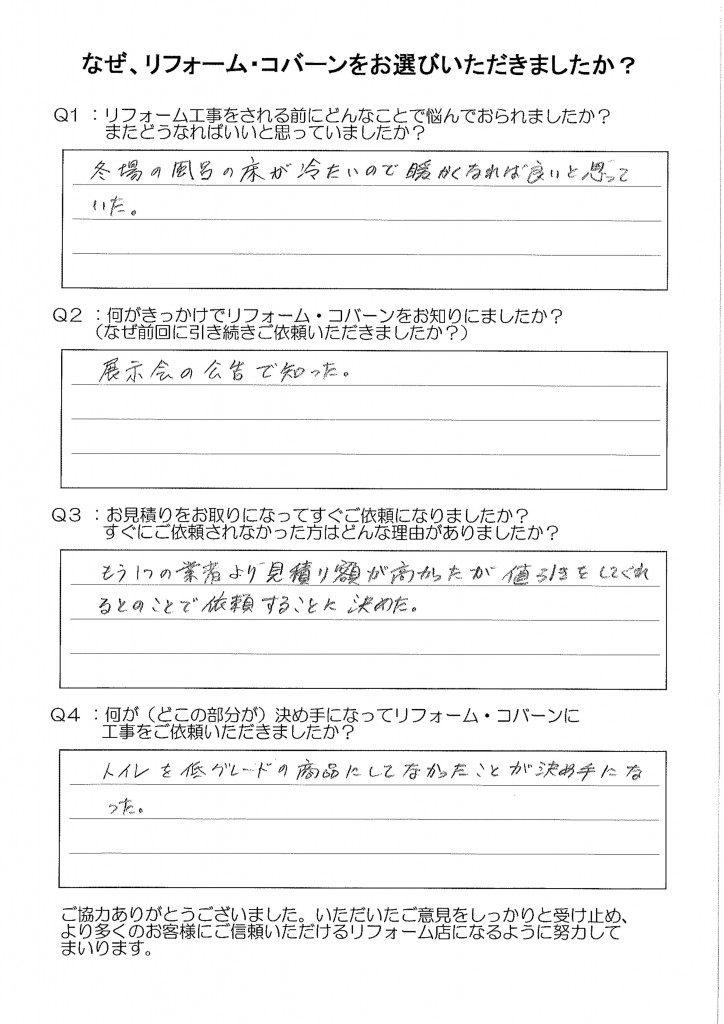 なぜ、リフォーム・コバーンをお選びいただきましたか？
Q1：リフォーム工事をされる前にどんなことで悩んでおられましたか？
またどうなればいいと思っていましたか？
冬場の風呂の床が冷たいので暖かくなれば良いと思って
いた。
Q2：何がきっかけでリフォーム・コバーンをお知りにましたか？
（なぜ前回に引き続きご依頼いただきましたか？）
展示会の公告で知った。
Q3：お見積りをお取りになってすぐご依頼になりましたか？
すぐにご依頼されなかった方はどんな理由がありましたか？
もう1つの業者より見積り額が高かったが値引きをしてくれ
るとのことで依頼することに決めた。
Q4：何が（どこの部分が）決め手になってリフォーム・コバーンに
工事をご依頼いただきましたか？
トイレを低グレードの商品にしてなかったことが決め手にな
った。
ご協力ありがとうございました。いただいたご意見をしっかりと受け止め、
より多くのお客様にご信頼いただけるリフォーム店になるように努力して
まいります。